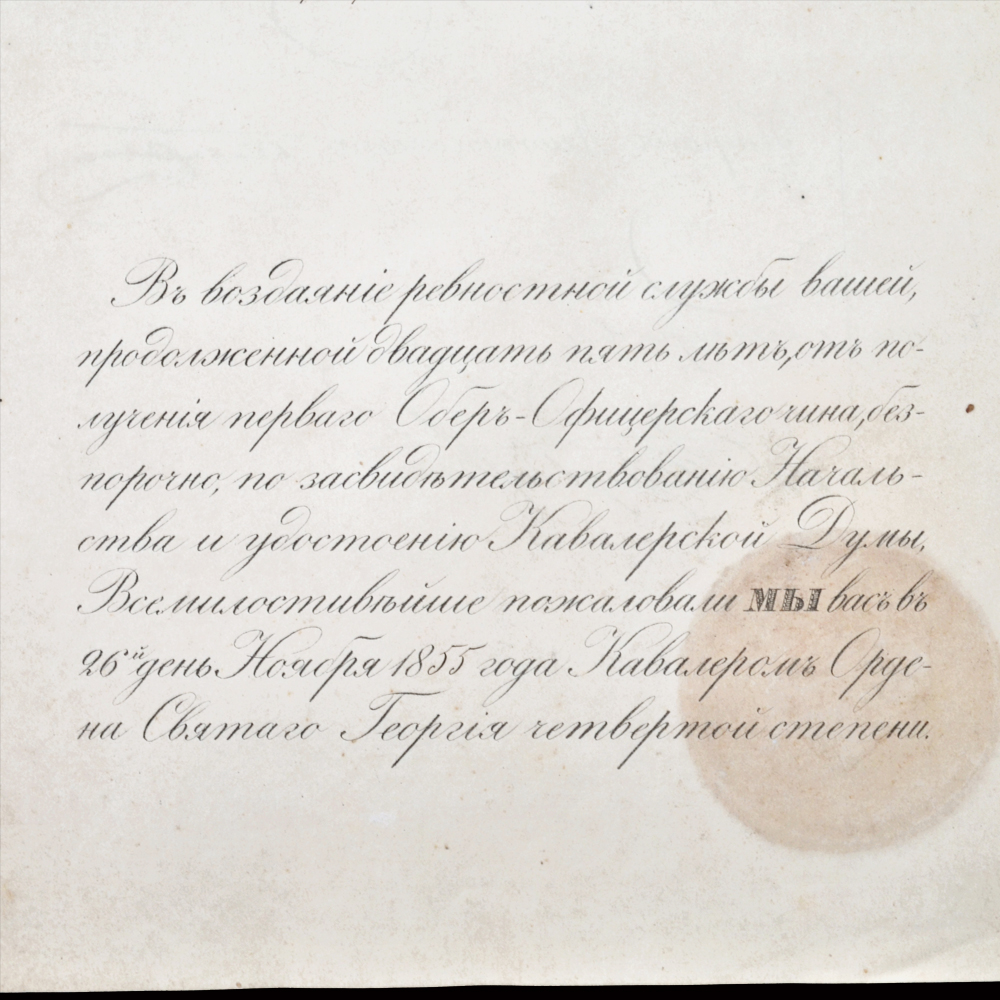 Въ воздаянiе ревностной службы вашей,
продолженной двадцать пять лѣтъ, отъ по-
лученiя перваго Оберъ-Офицерскаго чина, без-
порочно, по засвидѣтельствованiю Началь-
ства и удостоенiю Кавалерской Думы,
Всемилостивѣйше пожаловали МЫ васъ въ
26й день Ноября 1855 года Кавалеромъ Орде-
на Святаго Георгiя четвертой степени.